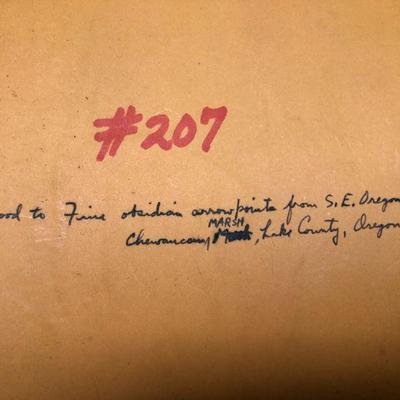 #207
ood to Fine obsidian arrowpoints from S.E. Oregon
MARSH
Chewaucamp, Lake County, Oregon